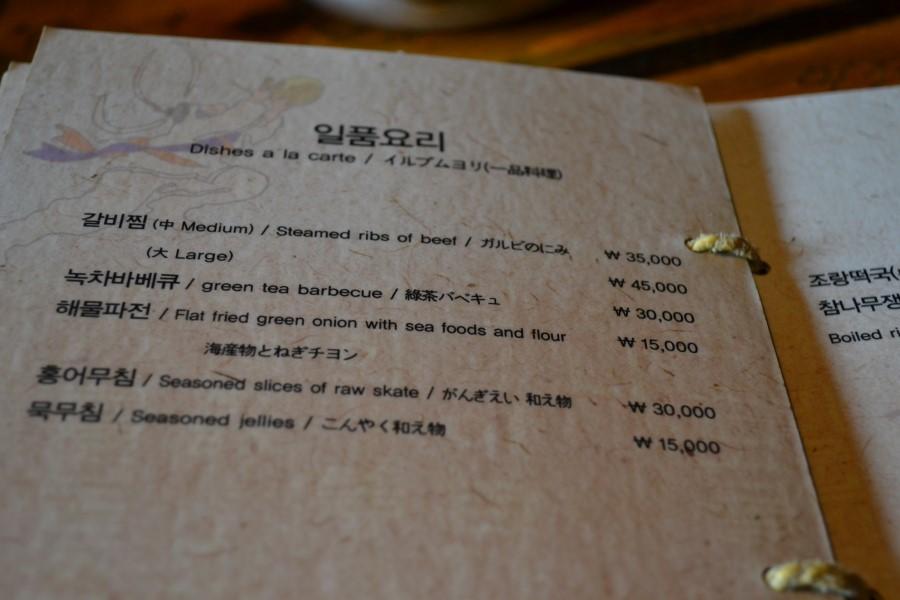 일품요리
Dishes a la carte / イルプムヨリ(一品料理)
갈비찜 (中 Medium) / Steamed ribs of beef / ガルビのにみ ₩ 35,000
(大 Large) ₩ 45,000
녹차바베큐 / green tea barbecue / 綠茶バベキュ ₩ 30,000
해물파전 / Flat fried green onion with sea foods and flour ₩ 15,000
海産物とねぎチヨン
홍어무침 / Seasoned slices of raw skate / がんぎえい 和え物 ₩ 30,000
묵무침 / Seasoned jellies / こんやく和え物 ₩ 15,000
조랑떡국
참나무쟁
Boiled ri